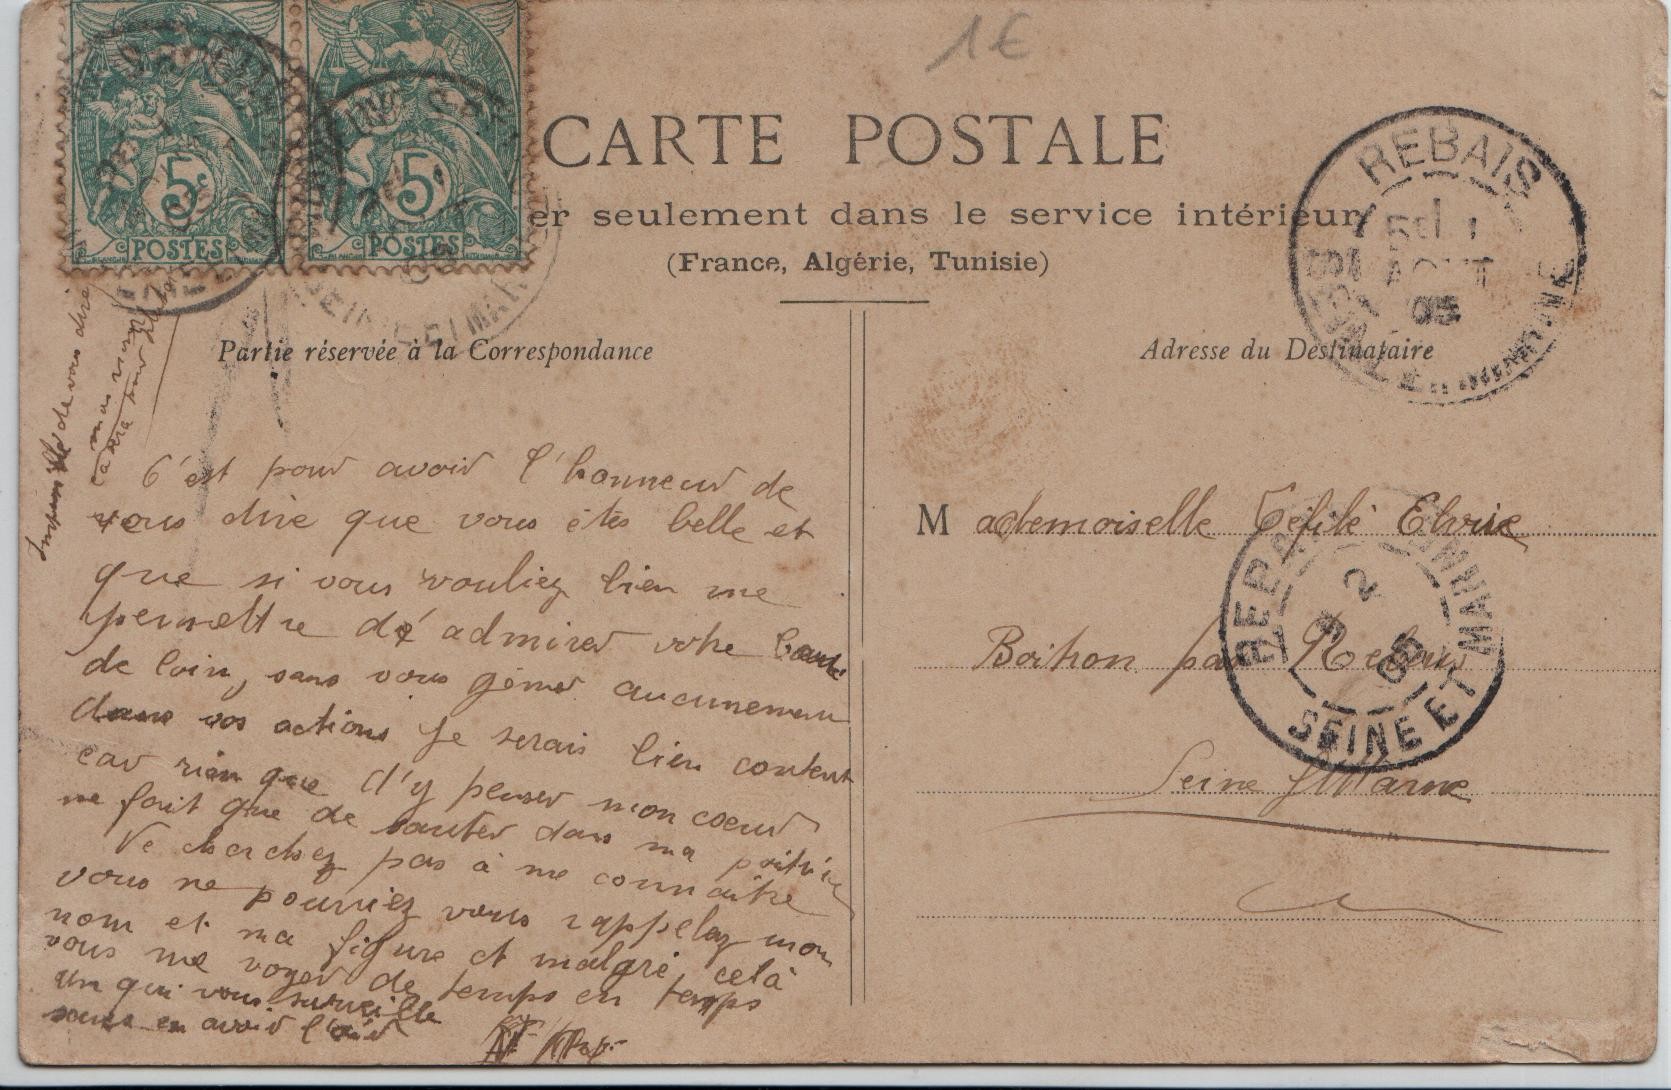 1€
CARTE POSTALE
er seulement dans le service intérieur
(France, Algérie, Tunisie)
5c
POSTES
5c
POSTES
SEINE ET MAR
REBAIS
AOUT
05
Partie réservée à la Correspondance
Adresse du Destinataire
de vous dire
C'est pour avoir l'honneur de
vous dire que vous êtes belle et
que si vous vouliez bien me
permettre d'admirer votre beauté
de loin, sans vous gêner aucunement
dans vos actions je serais bien content
car rien que d'y penser mon coeur
ne fait que de sauter dans ma poitrine
Ne cherchez pas à me connaître
vous ne pourriez vous rappelez mon
nom et ma figure et malgré celà
vous me voyez de temps en temps
un qui vous surveille
sans en avoir l'air
Mademoiselle Elvire
Boitron par Rebais
Seine et Marne
2
05
SEINE ET MARNE